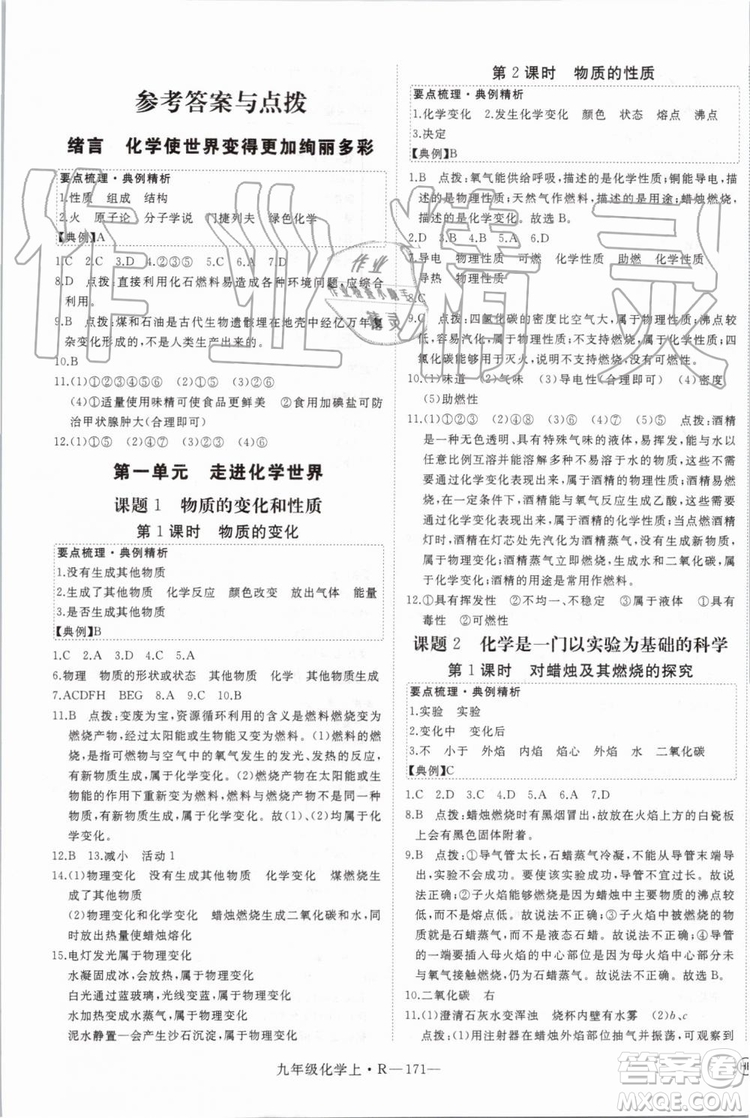 参考答案与点拨
绪言 化学使世界变得更加绚丽多彩
要点梳理·典例精析
1.性质 组成 结构
2.火 原子论 分子学说 门捷列夫 绿色化学
【典例】A
1.C 2.C 3.D 4.②③⑤ 5.D 6.D 7.D
8.D 点拨:直接利用化石燃料易造成各种环境问题,应积极
9.B 点拨:煤和石油是古代生物遗骸在地壳中经亿万年复
杂变化形成的,不是人类生产出来的。
10.B
11.(1)①②③④⑤⑥
(2)①适量使用味精可使食品更鲜美 ②食用加碘盐可防
治甲状腺肿大(合理即可)
12.(1)①⑤ (2)④⑦ (3)② (4)③ (5)⑥
第一单元 走进化学世界
课题 1 物质的变化和性质
第 1 课时 物质的变化
要点梳理·典例精析
1.没有生成其他物质
2.生成了其他物质 化学反应 颜色改变 放出气体 能量
3.是否生成其他物质
【典例】B
1.C 2.A 3.D 4.C 5.A
6.物理 物质的形状或状态 其他物质 化学 其他物质
7.ACDFH BEG 8.A 9.D 10.A
11.B 点拨:变废为宝,资源循环利用的含义是燃料燃烧变成
燃料,过程中通过太阳能或生物能,有新物质生成,属于化
学变化;燃料与空气中的氧气发生的发光、发热的反应,
有新物质生成,属于化学变化。利用太阳能或生物能的
作用下重新形成燃料,有新物质生成,属于化学变化,故
(1)、(2)均属于化学变化。
12.B 13.减小 活动 1
14.(1)物理变化 没有生成其他物质 化学变化 煤燃烧生
成了其他物质
(2)物理变化和化学变化 蜡烛燃烧生成二氧化碳和水,同
时放出热量使蜡烛熔化
15.电灯发光发热,属于物理变化
水凝固成冰,属于物理变化
白光通过蓝玻璃,透过蓝光,属于物理变化
水加热变成水蒸气,属于物理变化
泥水静置产生沙石沉淀,属于物理变化
第 2 课时 物质的性质
要点梳理·典例精析
1.化学变化 2.发生化学变化 颜色 状态 熔点 沸点
3.决定
【典例】B
1.B 点拨:氧气能供给呼吸,描述的是化学性质;铜能导电,
描述的是物理性质;天然气作燃料,描述的是用途;蜡烛燃烧,
描述的是化学变化。故选 B。
7.导电 物理性质 可燃 化学性质 助燃 化学性质
导热 物理性质
8.C
9.C 点拨:四氯化碳的密度比空气大,属于物理性质;沸点较
低,容易汽化,属于物理性质;不支持燃烧,属于化学性质;四
氯化碳能够用于灭火,说明不可燃,属于化学性质。故选 C。
10.(1)味道 (2)④ (3)导电性(合理即可) (4)密度
(5)助燃性
11.(1)① (2)③ (3)⑤ (4)② (5)④ 点拨:酒精
是一种无色透明、具有特殊气味的液体,易挥发,能与水
以任意比例互溶,并能溶解碘、酚酞等多种物质,不需要
通过化学变化表现出来,属于物理性质;酒精易燃烧,需要
通过化学变化表现出来,属于化学性质;当点燃酒精灯时,
酒精在灯芯处先汽化为酒精蒸气,没有新物质生成,属于
物理变化;酒精蒸气燃烧,生成水和二氧化碳,有新物质生
成,属于化学变化;酒精的用途是作燃料。
12.①具有挥发性 ②不均一、不稳定 ③受热易分解 ④具有
毒性 ⑤可燃性
课题 2 化学是一门以实验为基础的科学
第 1 课时 对蜡烛及其燃烧的探究
要点梳理·典例精析
1.实验 实验
2.变化中 变化后
3.不 小于 外焰 内焰 焰心 外焰 水 二氧化碳
【典例】C
1.D 2.C 3.D 4.A 5.A 6.A 7.D
8.B 点拨:蜡烛燃烧时有黑烟冒出,故放在火焰上方的白瓷板
上有黑色固体附着。
9.B 点拨:①导气管太长,石蜡蒸气未到导管末端即可凝固,
使实验不能成功,故说法正确;②子火焰的燃烧物质与母火
焰相同,都是石蜡蒸气,故说法不正确;③子母火焰的实验
说明了石蜡具有可燃性的化学性质和石蜡的沸点较
低的物理性质,故说法正确;④导管
一定要插入母火焰的中心部位,因为母火焰的中心部位
与氧气接触少,部分石蜡蒸气没有燃烧,故说法正确。
10.二氧化碳 右
11.(1)澄清石灰水变浑浊 烧杯内壁有水雾 (2)b,c
点拨:(1)用注射器在蜡烛外焰部位抽取气体,可观察到
九年级化学上·R—171—
作业精灵